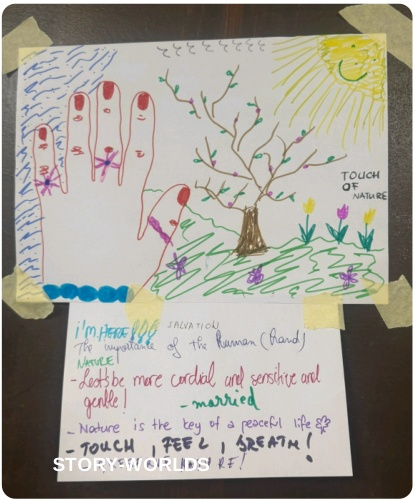 TOUCH
OF
NATURE
i'm HERE!!! SALVATION
The importance of the human (hand)
NATURE!
- Let's be more cordial and sensitive and
gentle!
- married
- Nature is the key of a peaceful life
- TOUCH, FEEL, BREATH!
STORY-WORLDS